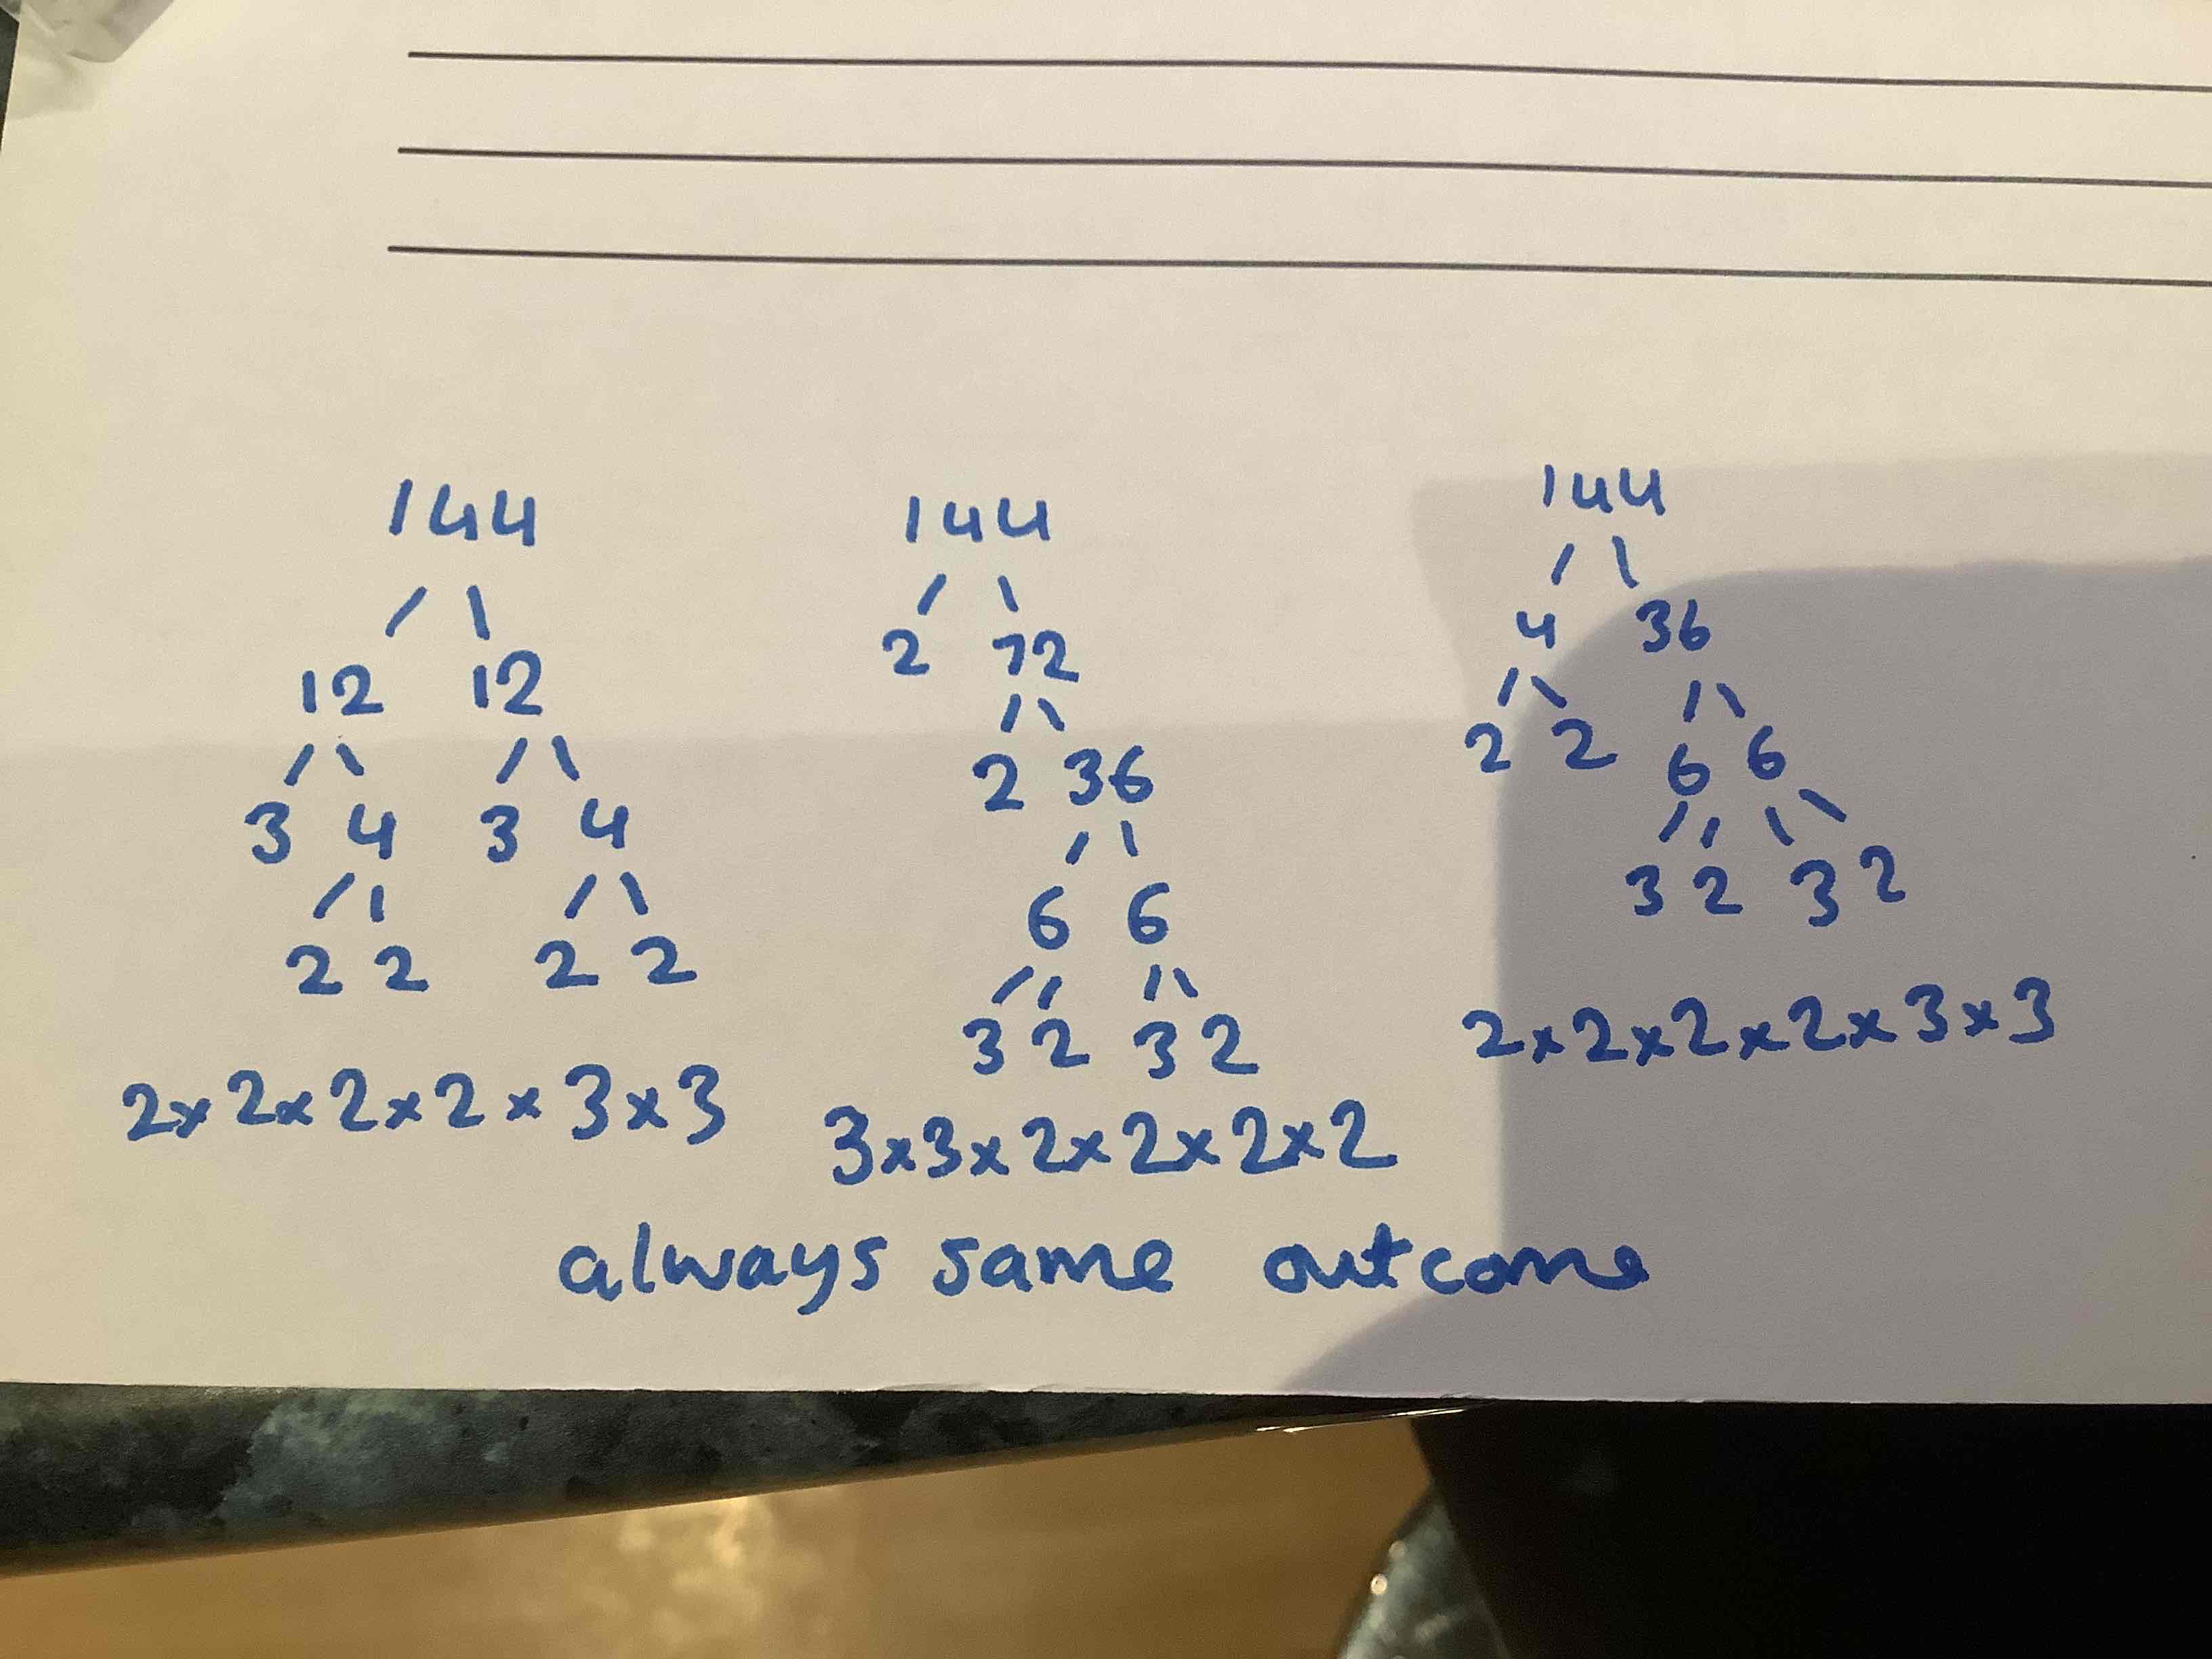 144
12 12
3 4 3 4
2 2 2 2
2x2x2x2x3x3
144
2 72
2 36
6 6
3 2 3 2
3x3x2x2x2x2
144
4 36
2 2 6 6
3 2 3 2
2x2x2x2x3x3
always same outcome